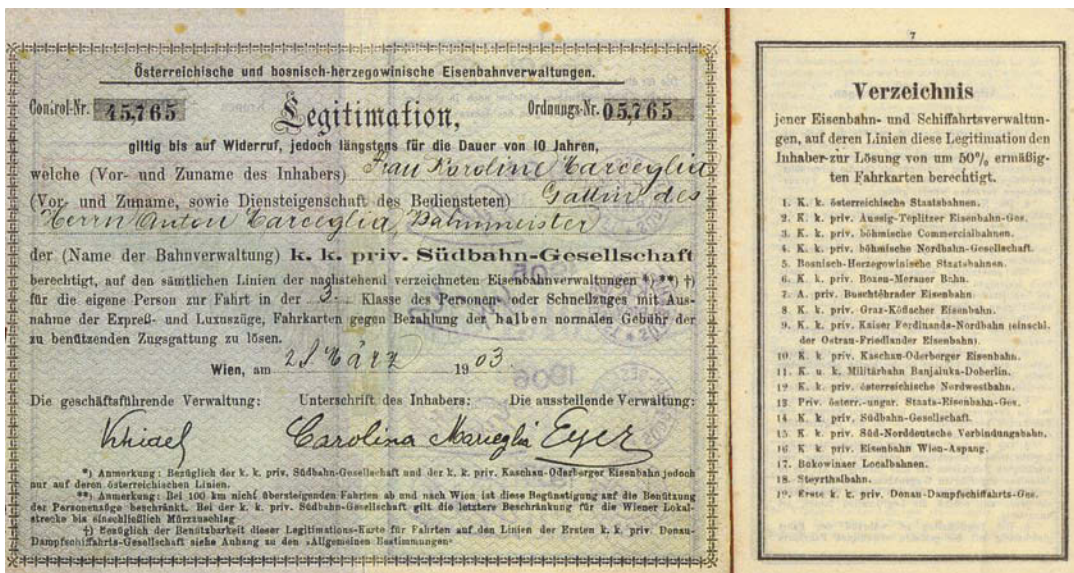 Österreichische und bosnisch-herzegowinische Eisenbahnverwaltungen.
Control-Nr. 45,765
Legitimation,
Ordnungs-Nr. 05,765
giltig bis auf Widerruf, jedoch längstens für die Dauer von 10 Jahren,
welche (Vor- und Zuname des Inhabers) Frau Karoline Marceglia
(Vor- und Zuname, sowie Diensteigenschaft des Bediensteten) Gattin des
Herrn Anton Marceglia, Bahnmeister
der (Name der Bahnverwaltung) k. k. priv. Südbahn-Gesellschaft
berechtigt, auf den sämtlichen Linien der nachstehend verzeichneten Eisenbahnverwaltungen *) **) †)
für die eigene Person zur Fahrt in der 3. Klasse des Personen- oder Schnellzuges mit Aus-
nahme der Expreß- und Luxuszüge, Fahrkarten gegen Bezahlung der halben normalen Gebühr der
zu benützenden Zugsgattung zu lösen.
Wien, am März 1903
Die geschäftsführende Verwaltung: Unterschrift des Inhabers: Die ausstellende Verwaltung:
Carolina
*) Anmerkung: Bezüglich der k. k. priv. Südbahn-Gesellschaft und der k. k. priv. Kaschau-Oderberger Eisenbahn jedoch
nur auf deren österreichischen Linien.
**) Anmerkung: Bei 100 km nicht übersteigenden Fahrten ab und nach Wien ist diese Begünstigung auf die Benützung
der Personenzüge beschränkt. Bei der k. k. priv. Südbahn-Gesellschaft gilt die letztere Beschränkung für die Wiener Lokal-
strecke bis einschließlich Mürzzuschlag
†) Bezüglich der Benützbarkeit dieser Legitimations-Karte für Fahrten auf den Linien der Ersten k. k. priv. Donau-
Dampfschiffahrts-Gesellschaft siehe Anhang zu den »Allgemeinen Bestimmungen«
7
Verzeichnis
jener Eisenbahn- und Schiffahrtsverwaltun-
gen, auf deren Linien diese Legitimation den
Inhaber zur Lösung von um 50% ermäßig-
ten Fahrkarten berechtigt.
1. K. k. österreichische Staatsbahnen.
2. K. k. priv. Aussig-Teplitzer Eisenbahn-Ges.
3. K. k. priv. böhmische Commercialbahnen.
4. K. k. priv. böhmische Nordbahn-Gesellschaft.
5. Bosnisch-Herzegowinische Staatsbahnen.
6. K. k. priv. Bozen-Meraner Bahn.
7. A. priv. Buschtěhrader Eisenbahn
8. K. k. priv. Graz-Köflacher Eisenbahn.
9. K. k. priv. Kaiser Ferdinands-Nordbahn (einschl.
der Ostrau-Friedlander Eisenbahn).
10. K. k. priv. Kaschau-Oderberger Eisenbahn.
11. K. u. k. Militärbahn Banjaluka-Doberlin.
12. K. k. priv. österreichische Nordwestbahn.
13. Priv. österr.-ungar. Staats-Eisenbahn-Ges.
14. K. k. priv. Südbahn-Gesellschaft.
15. K. k. priv. Süd-Norddeutsche Verbindungsbahn.
16. K. k. priv. Eisenbahn Wien-Aspang.
17. Bukowinaer Localbahnen.
18. Steyrthalbahn.
19. Erste k. k. priv. Donau-Dampfschiffahrts-Ges.